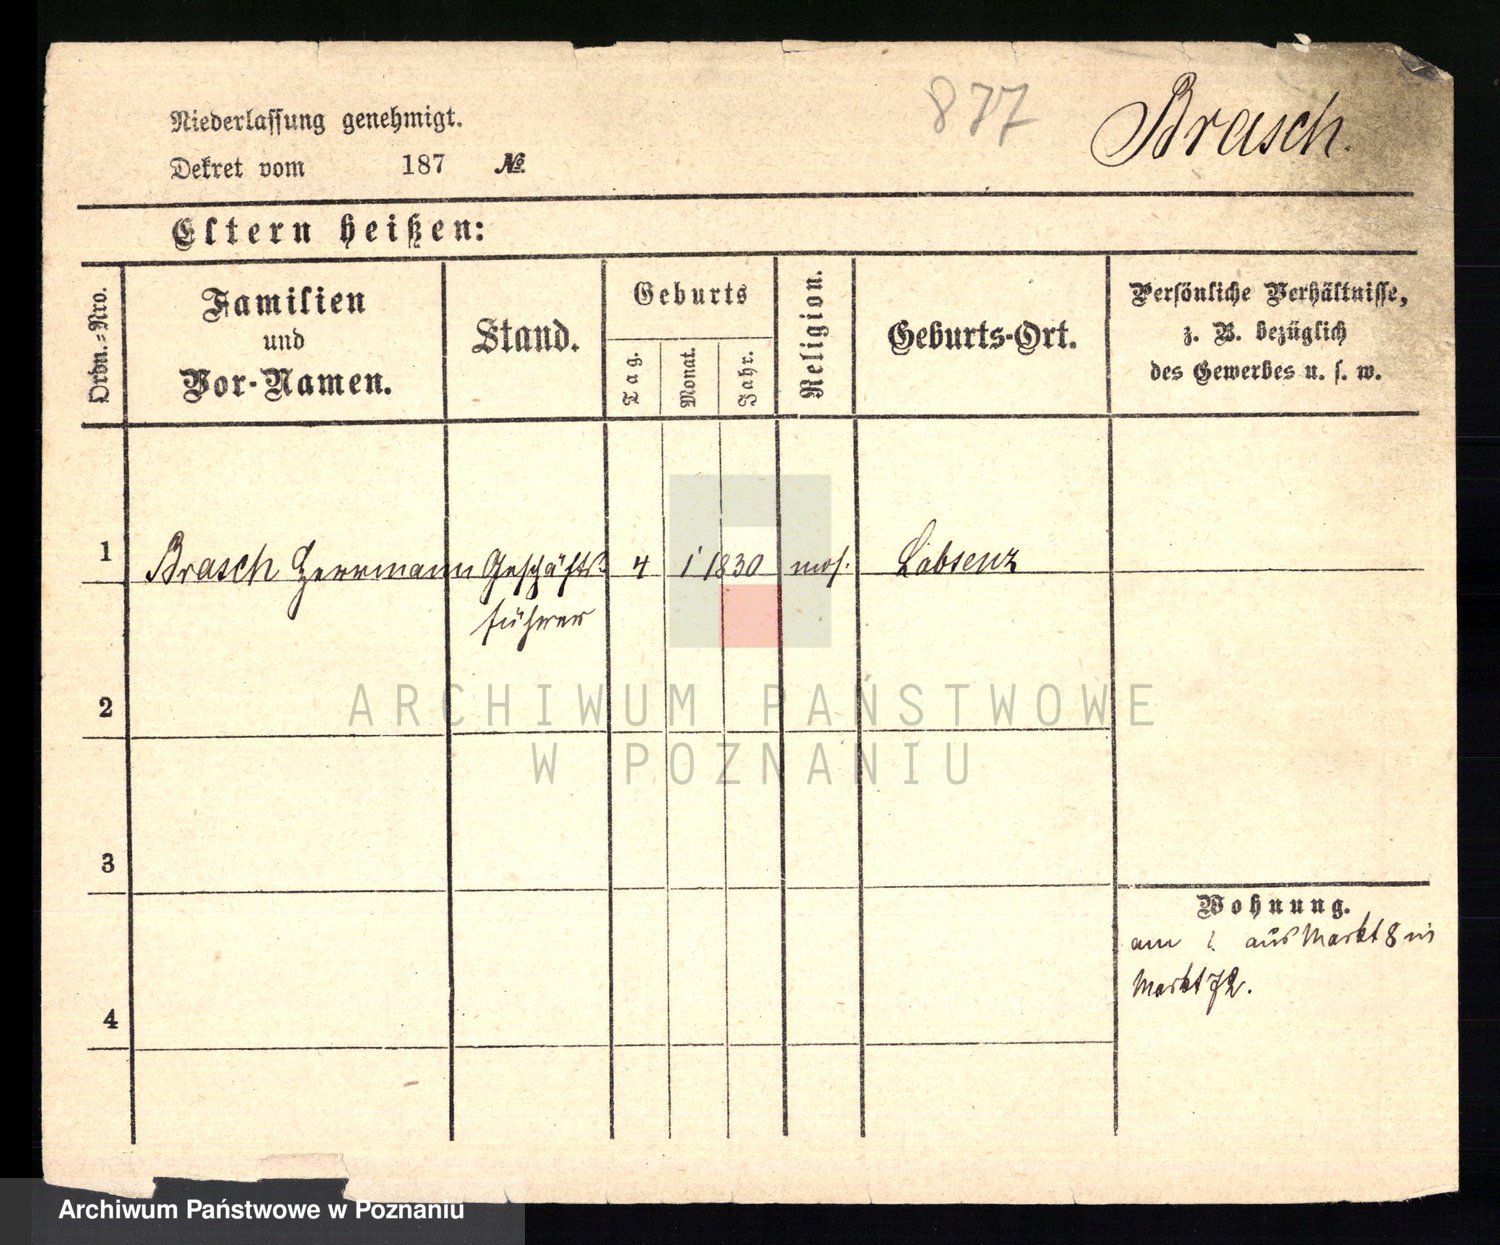 877 Brasch.
Niederlassung genehmigt.
Dekret vom 187 №
Eltern heißen:
Ordn.-Nro.
Familien
und
Vor-Namen.
Stand.
Geburts
Tag.
Monat.
Jahr.
Religion.
Geburts-Ort.
Persönliche Verhältnisse,
z. B. bezüglich
des Gewerbes u. s. w.
1 Brasch Herrmann Geschäfts 4 1 1830 mos. Lobsenz
führer
2
ARCHIWUM PAŃSTWOWE
W POZNANIU
3
Wohnung.
am aus Markt 8 in
Markt 72.
4
Archiwum Państwowe w Poznaniu